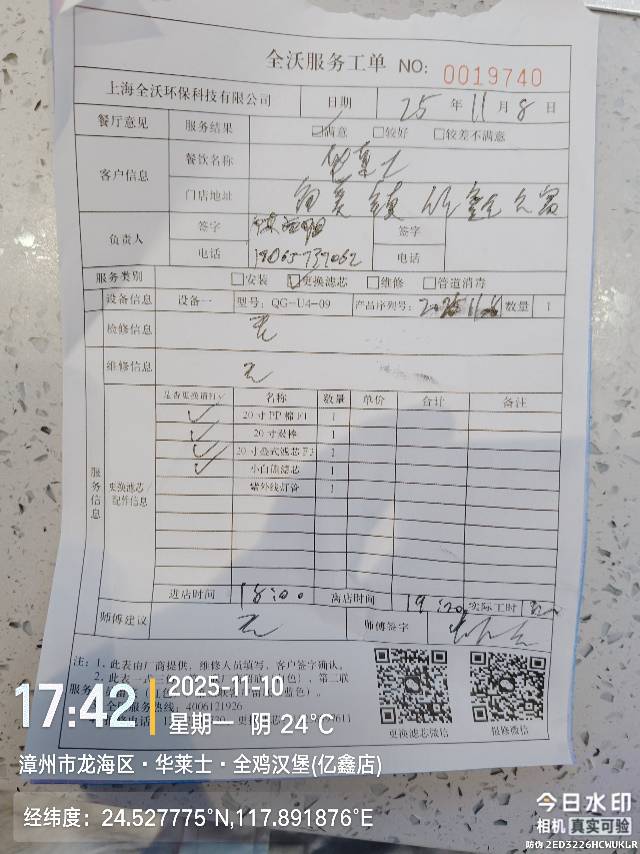 全沃服务工单 NO: 0019740
上海全沃环保科技有限公司 日期 25 年 11 月 8 日
餐厅意见 服务结果 ☑满意 □较好 □较差不满意
客户信息 餐饮名称 华莱士
门店地址 角美镇
负责人 签字 签字
电话 电话
服务类别 □安装 ☑更换滤芯 □维修 □管道消毒
设备信息 设备一 型号: QG-U4-09 产品序列号: 数量 1
检修信息 无
维修信息 无
服务信息 更换滤芯/配件信息
是否更换请打✓ 名称 数量 单价 合计 备注
✓ 20寸PP棉F1 1
✓ 20寸炭棒 1
✓ 20寸叠式滤芯F3 1
✓ 小白熊滤芯 1
紫外线灯管 1
进店时间 18:00 离店时间 19:20 实际工时
师傅建议 无 师傅签字
注: 1、此表由厂商提供, 维修人员填写, 客户签字确认。
2、此表一
服务热线: 4006121926
更换滤芯微信 报修微信
17:42 2025-11-10
星期一 阴 24°C
漳州市龙海区·华莱士·全鸡汉堡(亿鑫店)
经纬度: 24.527775°N,117.891876°E
今日水印
相机 真实可验
防伪 2ED3226HCWUKLR